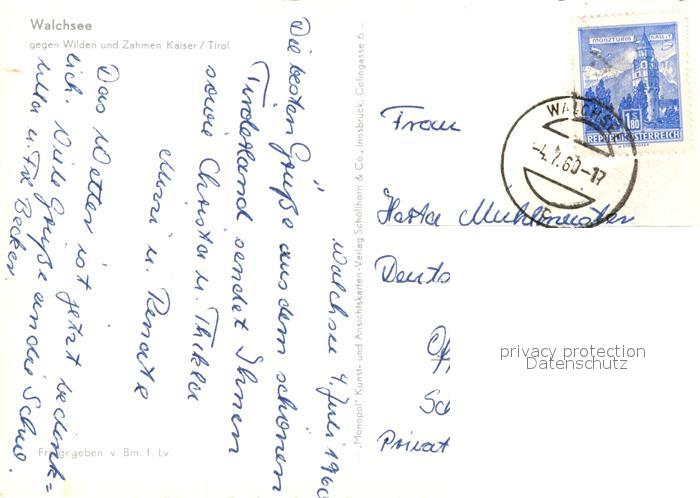 Walchsee
gegen Wilden und Zahmen Kaiser / Tirol
Walchsee 4. Juli 1960
Die besten Grüße aus dem schönen
Tirolerland sendet Ihnen
sowie Christa u. Thekla
u. Renate
Das Wetter ist jetzt bedenk=
lich. Viele Grüße an die
u. Frl. Becker.
Freigegeben v. Bm. f. Lv.
„Monopol" Kunst- und Ansichtskarten-Verlag Schöllhorn & Co., Innsbruck, Colingasse 6 –
MÜNZTURM HALL i. T.
S 1.80
REPUBLIK ÖSTERREICH
WALCHSEE
-4.7.60-17
Frau
Herta
Deuts
Sc
Privat
privacy protection
Datenschutz